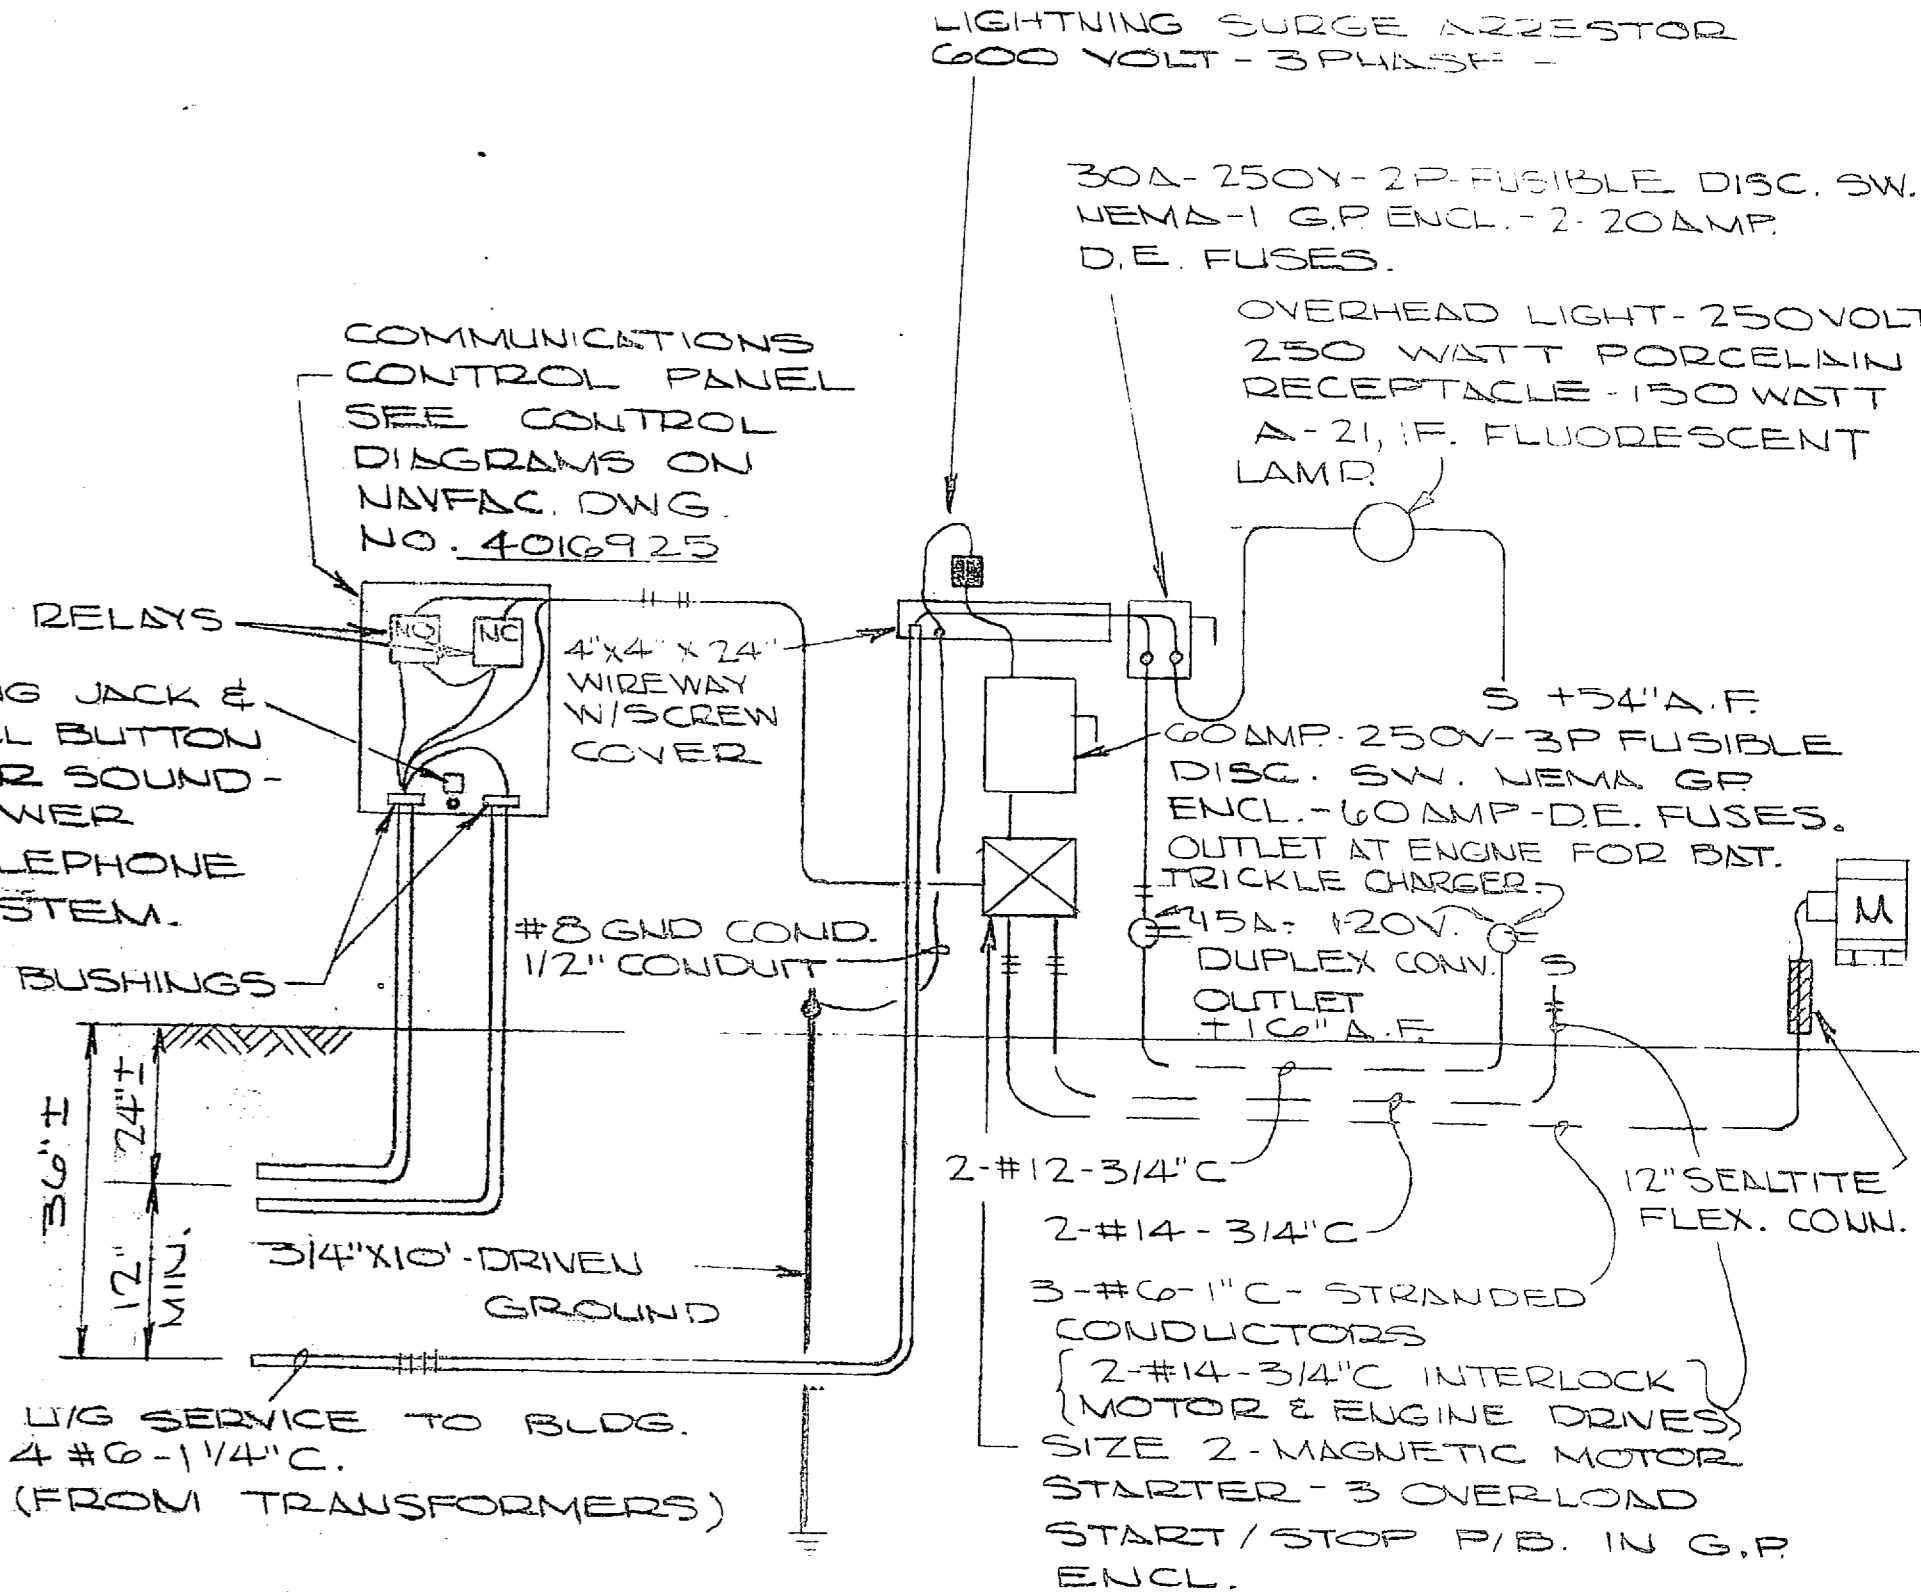 LIGHTNING SURGE ARRESTOR
600 VOLT - 3 PHASE -
30A-250V-2P-FUSIBLE DISC. SW.
NEMA-1 G.P. ENCL.-2-20 AMP.
D.E. FUSES.
OVERHEAD LIGHT-250VOLT
250 WATT PORCELAIN
RECEPTACLE-150 WATT
A-21, I.F. FLUORESCENT
LAMP.
COMMUNICATIONS
CONTROL PANEL
SEE CONTROL
DIAGRAMS ON
NAVFAC. DWG.
NO. 4016925
RELAYS
NO
NC
4"X4" X 24"
WIREWAY
W/SCREW
COVER
NG JACK &
LL BUTTON
R SOUND-
WER
LEPHONE
STEM.
BUSHINGS
S +54" A.F.
60 AMP.-250V-3P FUSIBLE
DISC. SW. NEMA GP
ENCL.-60 AMP-D.E. FUSES.
OUTLET AT ENGINE FOR BAT.
TRICKLE CHARGER.
15A- 120V.
DUPLEX CONV.
OUTLET
+16" A.F.
S
M
#8 GND COND.
1/2" CONDUIT
36"±
24"±
12"
MIN.
3/4"X10'-DRIVEN
GROUND
2-#12-3/4"C
2-#14-3/4"C
12" SEALTITE
FLEX. CONN.
3-#6-1"C- STRANDED
CONDUCTORS
{2-#14-3/4"C INTERLOCK}
{MOTOR & ENGINE DRIVES}
SIZE 2-MAGNETIC MOTOR
STARTER-3 OVERLOAD
START/STOP P/B. IN G.P.
ENCL.
U/G SERVICE TO BLDG.
4 #6-1 1/4"C.
(FROM TRANSFORMERS)